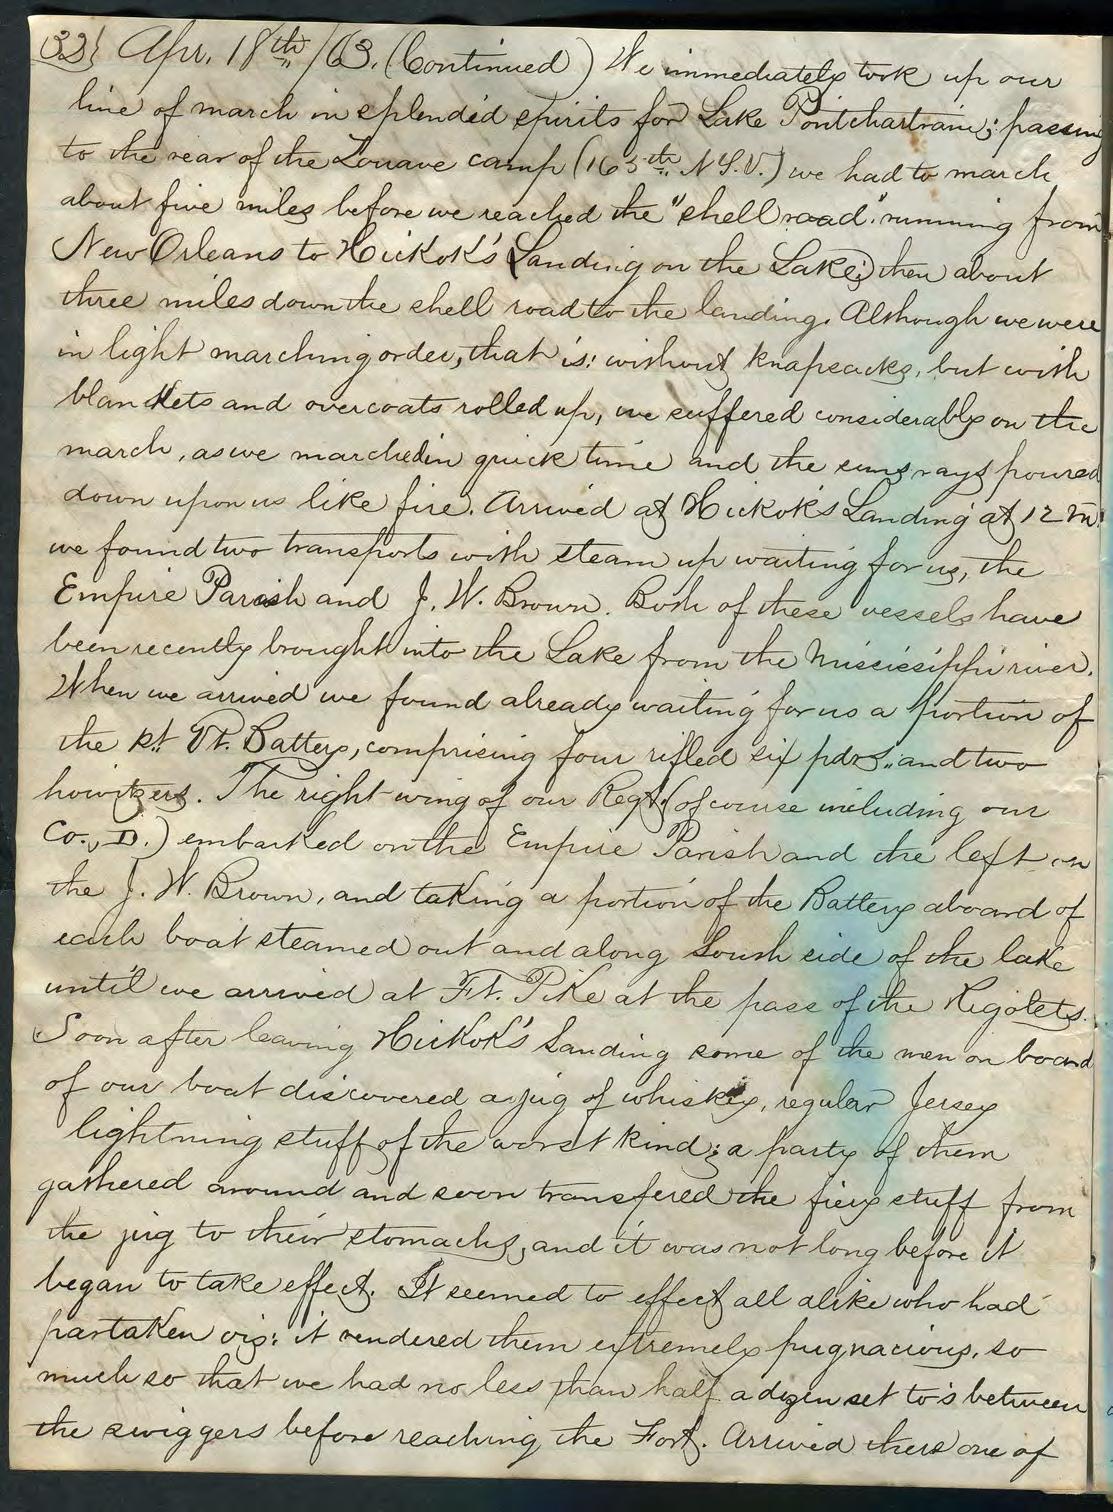 33} Apr. 18th/63. (Continued) We immediately took up our
line of march in splendid spirits for Lake Pontchartrain; passing
to the rear of the Zouave camp (165th. N.Y.V.) we had to march
about five miles before we reached the "shell road" running from
New Orleans to Hickok's Landing on the Lake; then about
three miles down the shell road to the landing. Although we were
in light marching order, that is: without knapsacks, but with
blankets and overcoats rolled up, we suffered considerably on the
march, as we marched in quick time and the suns rays poured
down upon us like fire. Arrived at Hickok's Landing at 12 m.
we found two transports with steam up waiting for us, the
Empire Parish and J. W. Brown. Both of these vessels have
been recently brought into the Lake from the Mississippi river.
When we arrived we found already waiting for us a portion of
the Vt. Battery, comprising four rifled six pdrs., and two
howitzers. The right wing of our Regt. (of course including our
Co., D.) embarked on the Empire Parish and the left on
the J. W. Brown, and taking a portion of the Battery aboard of
each boat steamed out and along South side of the lake
until we arrived at Ft. Pike at the pass of the Rigolets.
Soon after leaving Hickok's Landing some of the men on board
of our boat discovered a jug of whiskey, regular Jersey
lightning stuff of the worst kind; a party of them
gathered around and soon transfered the fiery stuff from
the jug to their stomachs, and it was not long before it
began to take effect. It seemed to effect all alike who had
partaken viz: it rendered them extremely pugnacious, so
much so that we had no less than half a dozen set to's between
the swiggers before reaching the Fort. Arrived there one of